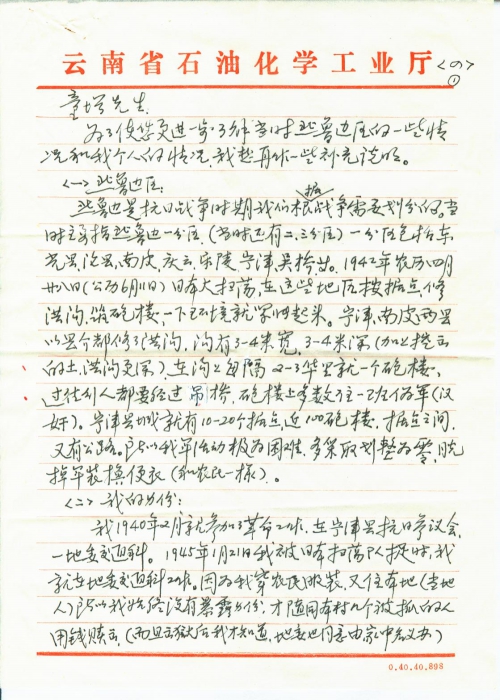 云南省石油化学工业厅
<の>
①
童增先生
为了使您更进一步了解当时冀鲁边区的一些情
况和我个人的情况,我想再作一些补充说明。
<一>冀鲁边区:
冀鲁边是抗日战争时期我们根据战争需要划分的。当
时主要指冀鲁边一分区,(当时还有二、三分区)一分区包括东
光县、沧县、南皮、庆云、乐陵、宁津、吴桥等。1942年农历四月
廿八日(公历6月11日)日本大扫荡,在这些地区按据点,修
洪沟,筑砲楼,一下环境就紧张起来。宁津、南皮两县
以县个都修了洪沟,沟有3-4米宽,3-4米深(加上挖出
的土,洪沟更深),在沟上每隔2-3华里就一个砲楼,
过往行人都要经过吊桥,砲楼上多数住一班伪军(汉
奸)。宁津县城就有10-20个据点,近100砲楼,据点之间,
又有公路。所以我军活动极为困难,多采取划整为零,脱
掉军装换便衣(和农民一样)。
<二>我的身份:
我1940年2月就参加了革命工作,在宁津县抗日参议会,
一地委交通科。1945年1月21日我被日本扫荡队捉时,我
就在地委交通科工作。因为我穿农民服装,又住本地(当地
人)所以我始终没有暴露身份,才随同本村几个被抓的人
用钱赎出,(而且出狱后我才知道,地委也同意由家中名义办)
0.40.40.898